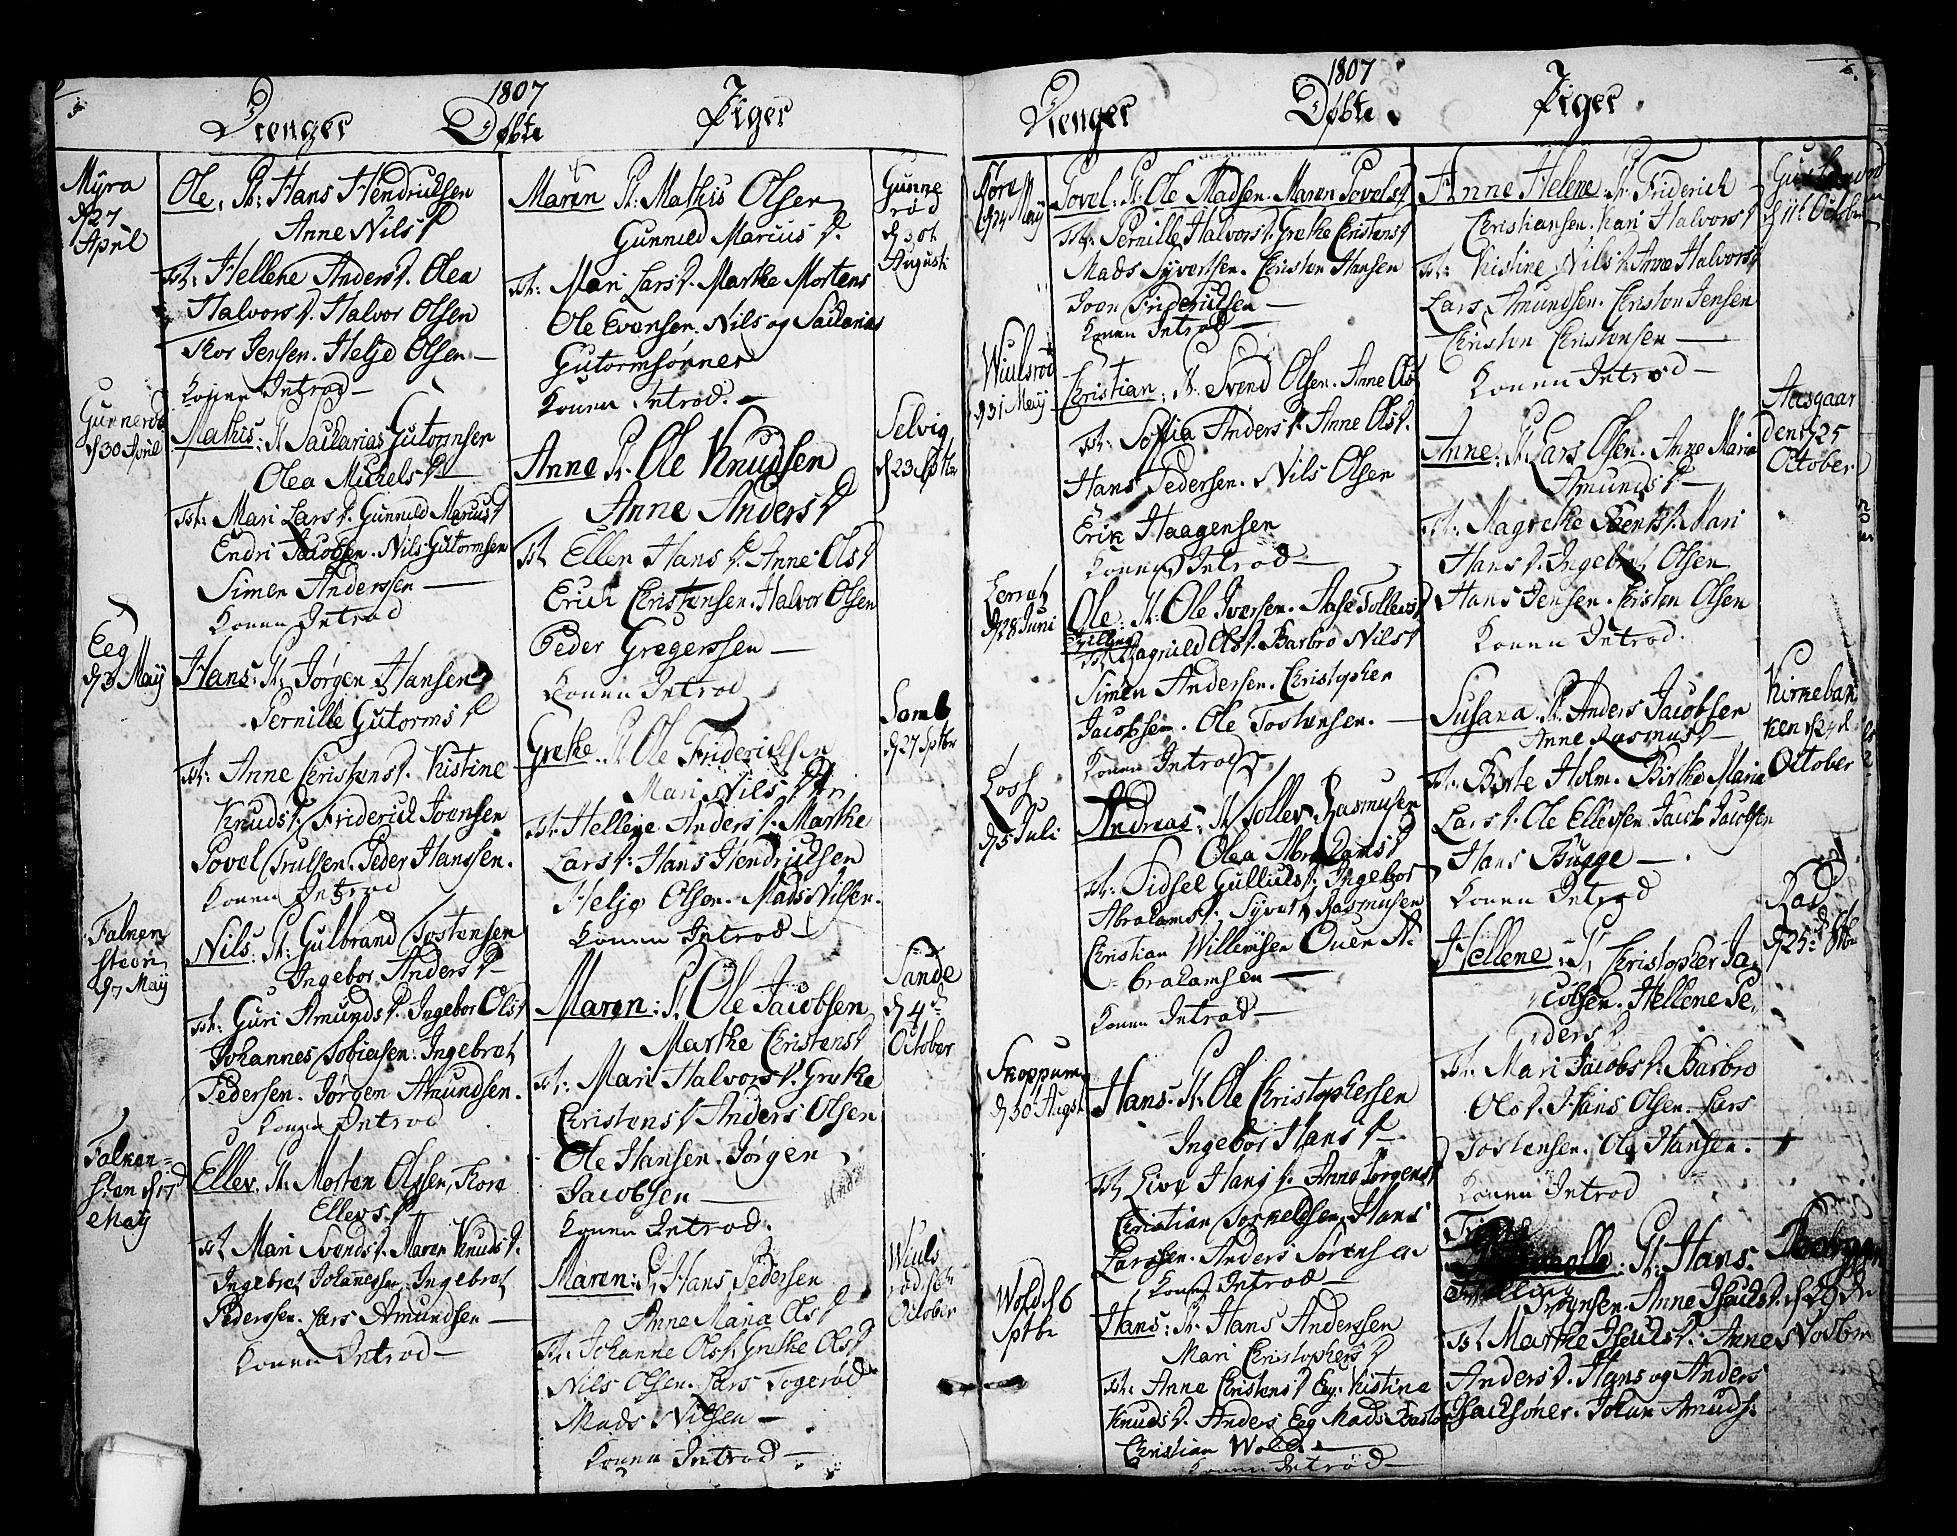 1807
Drenger Døbte Piger
Myra
d 27
April
Ole, Pt: Hans Hendricksen
Anne Nilsd
Tst: Hellene Andersd. Olea
Halvorsd. Halvor Olsen
Thor Jensen. Helje Olsen
Konen Introd
Gunnerød
d 30 April
Mathis: Pt Sackarias Gutormsen
Olea Michelsd
Tst: Mari Larsd. Gunnild Mariusd
Endri Jacobsen. Nils Gutormsen
Simen Anderssen
Konen Introd
Eeg
d 3 Maÿ
Hans: Pt: Jørgen Hansen
Pernille Gutormsd
Tst: Anne Christensd. Kistine
Knudsd. Friderick Ivensen
Povel Trulsen. Peder Hanssen.
Konen Introd
Falken
steen
d 7 Maÿ
Nils: Pt: Gulbrand Tostensen
Ingebor Andersd
Tst: Guri Amundsd. Ingebor Olsd
Johannes Tobiessen. Ingebret
Pedersen. Jørgen Amundsen.
Konen Introd
Falken=
sten d 17
Maÿ
Ellev, Pt. Morten Olssen, Flora
Ellevsd
Tst Mari Svendsd. Maren Knudsd.
Ingebret Johannessen. Ingebret
Pederssen. Lars Amundsen
Konen Introd
Maren Pt: Mathis Olsen
Gunnild Mariusd.
Tst: Mari Larsd. Marthe Mortens
Ole Evensen. Nils og Sackarias
Gutormsønner
Konen Introd.
Gunne
rød
d 30t
Augusti
Anne Pt. Ole Knudsen
Anne Andersd
Tst Ellen Hansd. Anne Olsd
Erich Christensen. Halvor Olsen
Peder Gregerssen
Konen Introd
Selvig
d 23 Sptbr
Grethe. Pt Ole Fridericksen
Mari Nilsd
Tst: Hellene Andersd. Marthe
Larsd. Hans Hendricksen
Helje Olsen. Mads Nilsen.
Konen Introd
Somb
d 27 Sptbr
Maren: Pt. Ole Jacobsen
Marthe Christensd
Tst: Mari Halvorsd. Grethe
Christensd Anders Olsen
Ole Hansen. Jørgen
Jacobsen
Konen Introd.
Sande
d 4d
October
Maren: Pt. Hans Pedersen
Anne Maria Olsd
Tst: Johanne Olsd. Grethe Olsd
Nils Olsen. Lars Togerød
Mads Nilsen
Konen Introd
Wiuls
rød
October
1807
Drenger Døbte Piger
Røre
d 24 Maÿ
Povel: Pt: Ole Madsen. Maren Povelsd
Tst: Pernille Halvorsd. Grethe Christensd
Mads Syvertsen. Christen Hansen
Iven Fridericksen
Konen Introd
Wiulsrød
d 31 Maÿ
Christian: Pt. Svend Olsen. Anne Olsd
Tst: Soffia Andersd. Anne Olsd.
Hans Pedersen. Nils Olsen
Erik Haagensen
Konen Introd
d 28 Juni
Ole: Pt: Ole Iversen. Aase Tollevsd
Tvilling
Tst Dagnild Olsd. Barbro Nilsd
Simen Andersen. Christopher
Jacobsen. Ole Tostensen.
Konen Introd
d 5 Juli
Andreas: Pt Tollev Rasmusen
Olea Abrahamsd
Tst: Sidsel Gullicksd. Ingebor
Abrahamsd. Syvert Rasmusen
Christian Willemsen Ouen A=
brahamsen
Konen Introd
Skoppum
d 30 Augst
Hans. Pt: Ole Christophersen
Ingebor Hansd
Tst Live Hansd. Anne Jørgensd
Christian Torkeldsen. Hans
Larssen. Anders Sørensen
Konen Introd
Wold d 6
Sptbr
Hans: Pt. Hans Anderssen
Mari Christophersd
Tst: Anne Christensd Eeg. Kistine
Knudsd. Anders Eeg Mads
Christian Wold
Konen Introd
Anne Helene Pt. Friderich
Christiansen. Kari Halvorsd
Tst: Kistine Nilsd. Anne Halvorsd
Lars Amundsen. Christen Jensen
Christen Christensen
Konen Introd
d 11t October
Anne: Pt Lars Olsen. Anne Maria
Amundsd
Tst: Magrethe Mari
Hansd. Ingebret Olsen
Hans Jensen. Christen Olsen
Konen Introd.
Aasgaar
den d 25
October
Susana. Pt. Anders Jacobsen
Anne Rasmusd
Tst: Birte Holm. Birthe Maria
Larsd. Ole Ellevsen Jacob Jacobsen
Hans Bugge
Konen Introd
Kirkebak
ken d 24d
October
Hellene: Pt. Christopher Ja=
cobsen. Hellene Pe=
dersd
Tst: Mari Jacobsd. Barbro
Olsd. Hans Olsen. Lars
Tostensen. Ole Hansen.
Konen Introd
d 25
Pt: Hans
Tvilling
Anne Isacksd.
Tst Marthe Isacksd. Anne
Andersd. Hans og Anders
Isacksøner. Johan Amuds.
d 29
Novbr